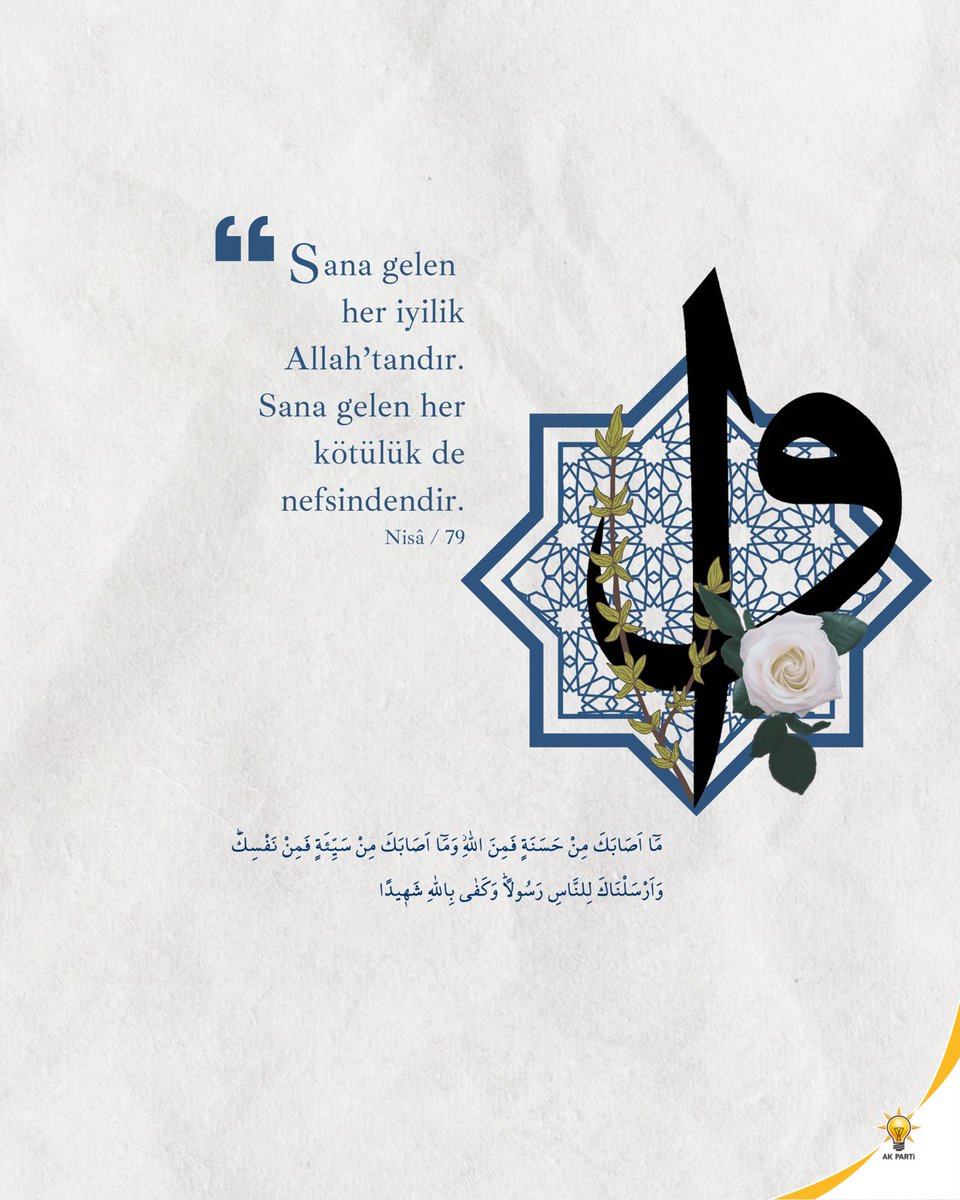 Sana gelen
her iyilik
Allah’tandır.
Sana gelen her
kötülük de
nefsindendir.
Nisâ / 79
مَٓا اَصَابَكَ مِنْ حَسَنَةٍ فَمِنَ اللّٰهِۘ وَمَٓا اَصَابَكَ مِنْ سَيِّئَةٍ فَمِنْ نَفْسِكَۜ
وَاَرْسَلْنَاكَ لِلنَّاسِ رَسُولاًۜ وَكَفٰى بِاللّٰهِ شَه۪يدًا
AK PARTİ